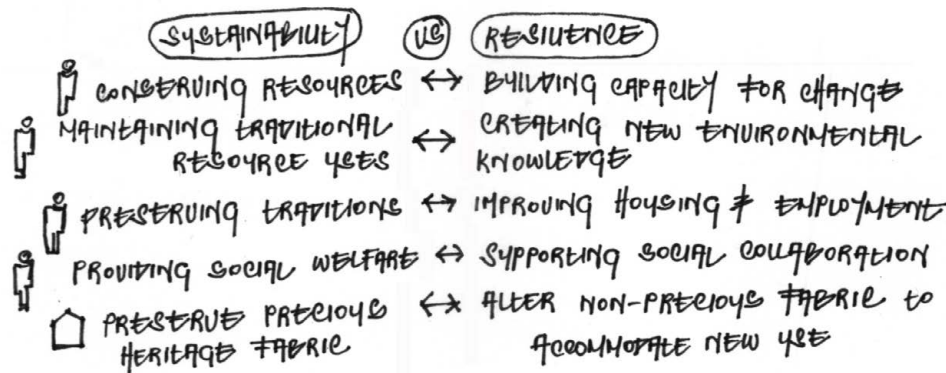 SUSTAINABILITY VS RESILIENCE
CONSERVING RESOURCES ↔ BUILDING CAPACITY FOR CHANGE
MAINTAINING TRADITIONAL RESOURCE USES ↔ CREATING NEW ENVIRONMENTAL KNOWLEDGE
PRESERVING TRADITIONS ↔ IMPROVING HOUSING & EMPLOYMENT
PROVIDING SOCIAL WELFARE ↔ SUPPORTING SOCIAL COLLABORATION
PRESERVE PRECIOUS HERITAGE FABRIC ↔ ALTER NON-PRECIOUS FABRIC TO ACCOMMODATE NEW USE